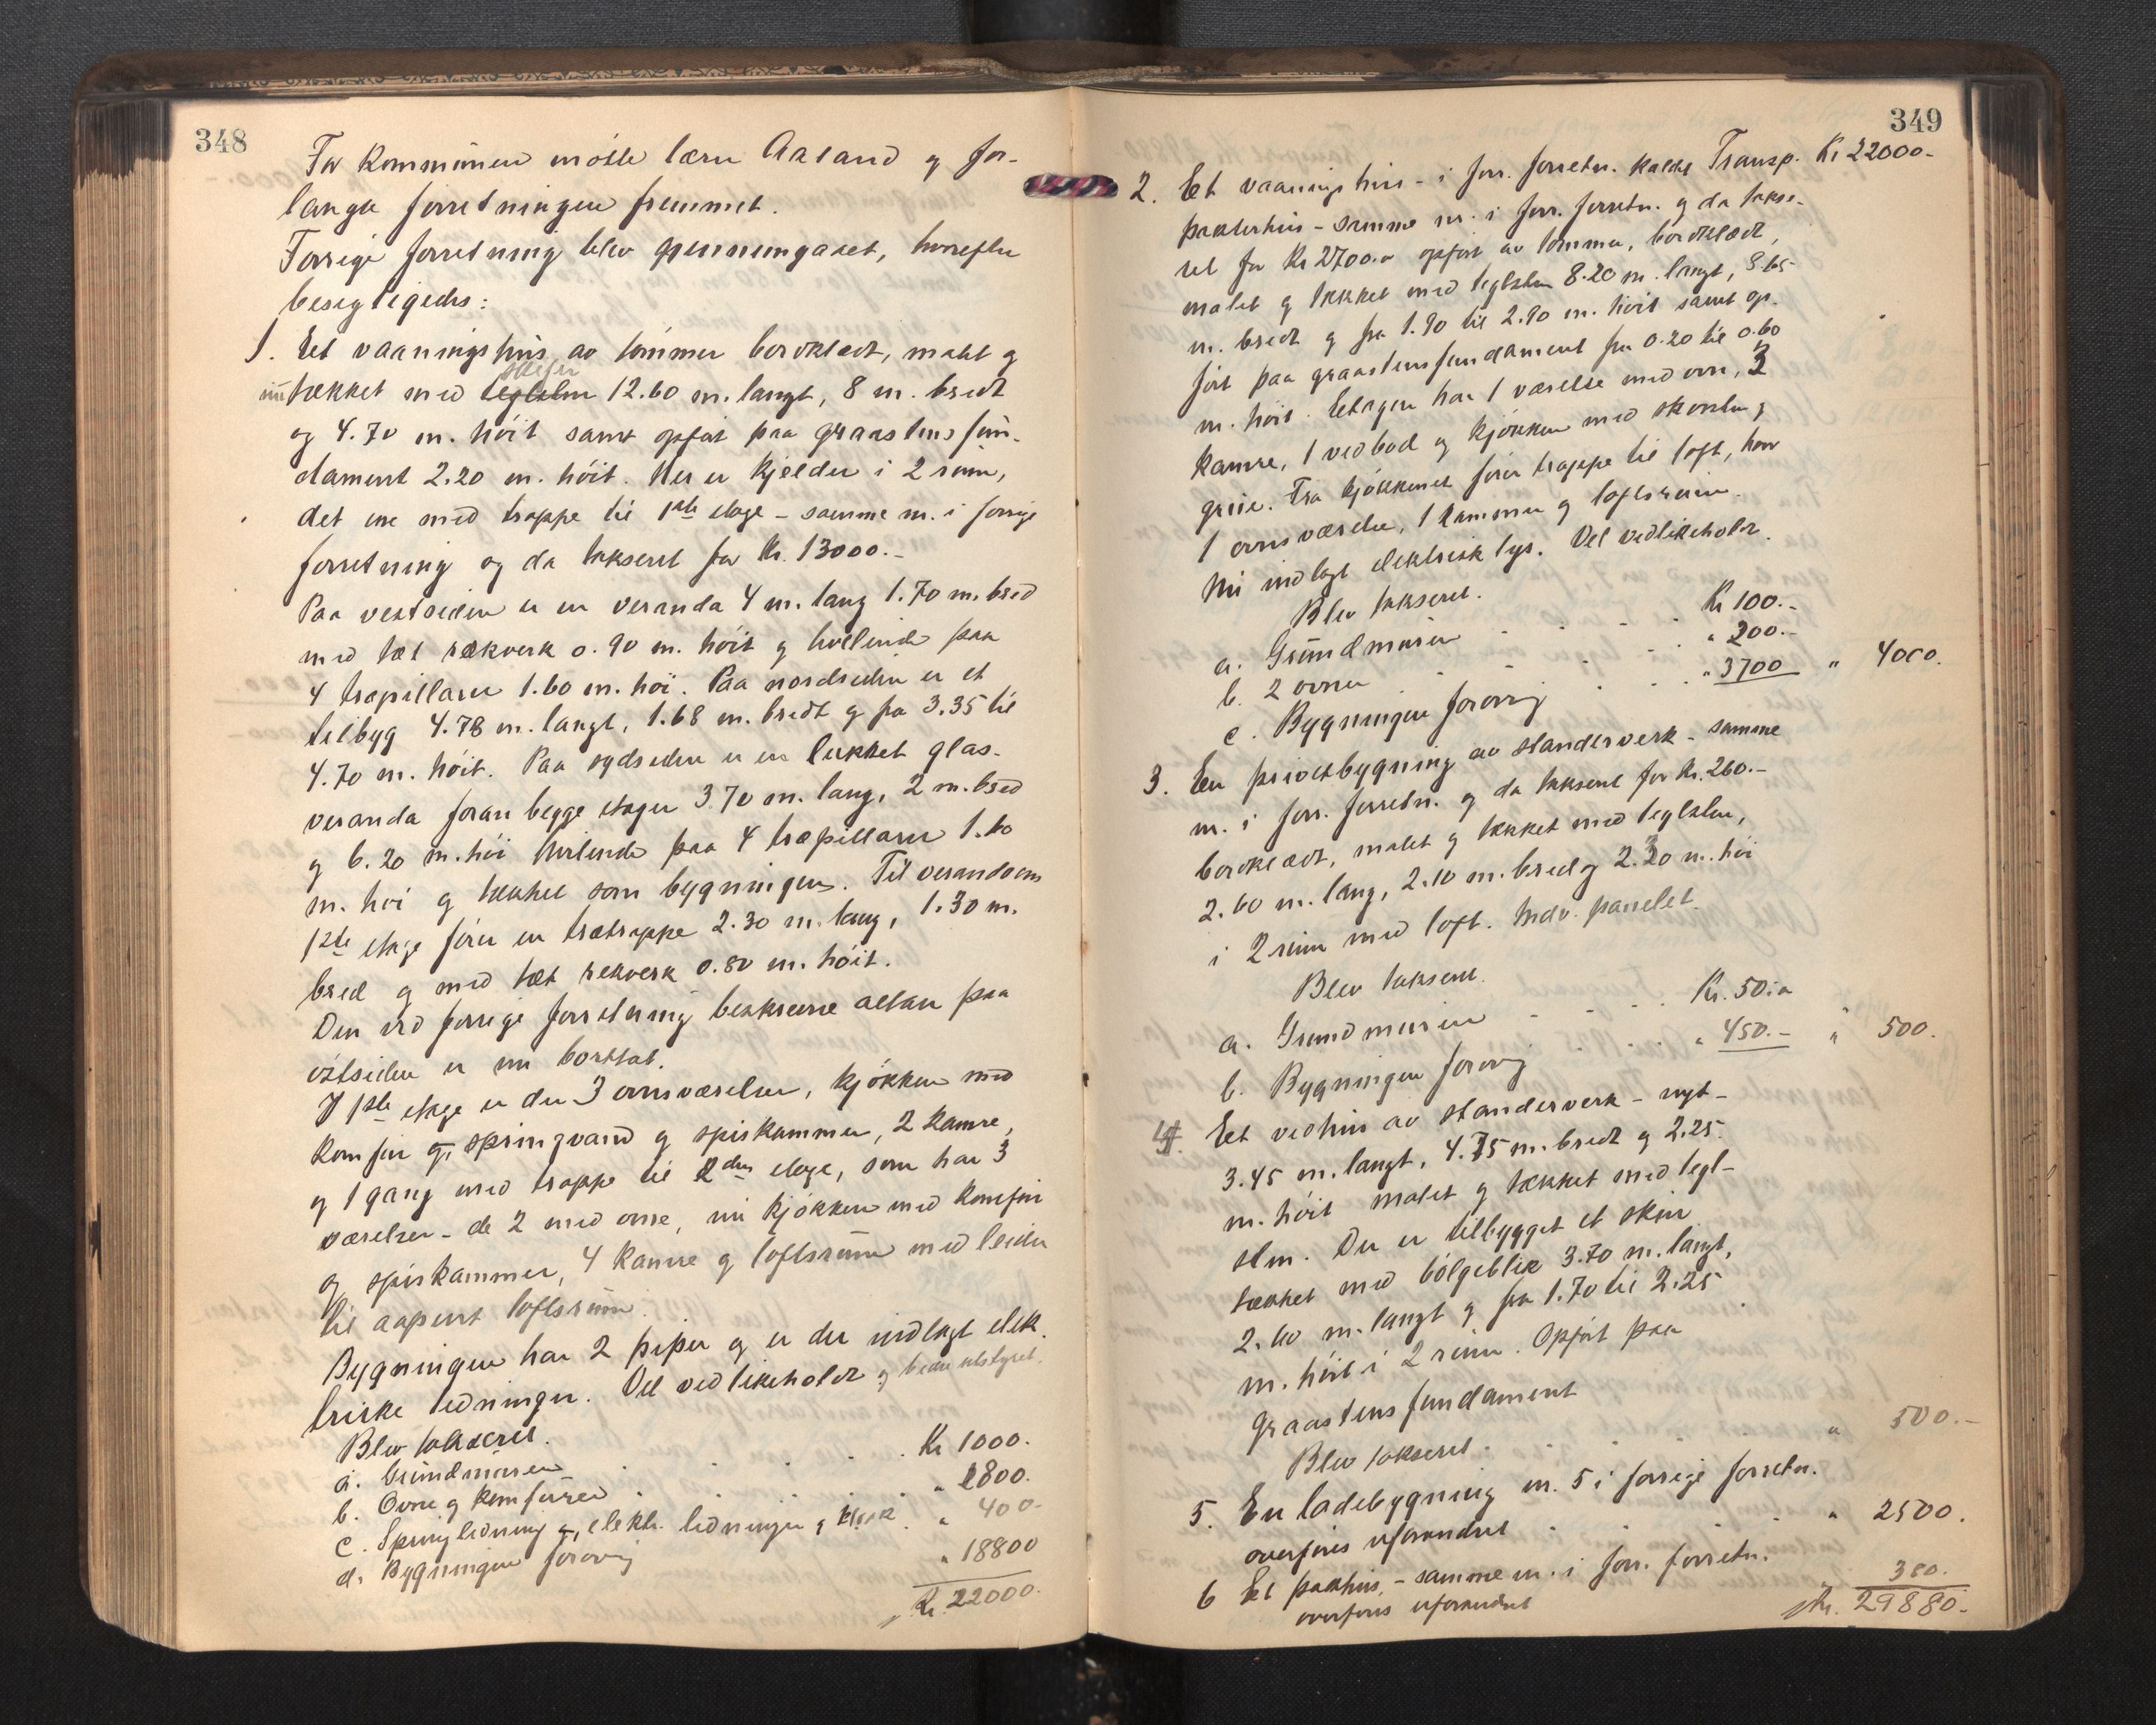 348
For kommunen mötte lærer Aaland og for-
langte forretningen fremmet.
Forrige forretning blev gjennemgaaet, hvorefter
besigtigedes:
1. Et vaaningshus av tömmer bordklædt, malt og
skifer
nu tækket med teglsten 12.60 m. langt, 8 m. bredt
og 4.70 m. höit samt opfört paa graastensfun-
dament 2.20 m. höit. Her er kjelder i 2 rum,
det ene med trappe til 1ste etage - samme nr. i forrige
forretning og da takseret for Kr. 13000.-
Paa vestsiden er en veranda 4 m. lang 1.70 m. bred
med tæt rækverk 0.90 m. höit og hvilende paa
4 træpillarer 1.60 m. höi. Paa nordsiden er et
tilbyg 4.78 m. langt, 1.68 m. bredt og fra 3.35 til
4.70 m. höit. Paa sydsiden er en lukket glas-
veranda foran begge etager 3.70 m. lang, 2 m. bred
og 6.20 m. höi hvilende paa 4 træpillarer 1.60
m. höi og tækket som bygningen. Til verandaens
1ste etage förer en trætrappe 2.30 m. lang, 1.30 m.
bred og med tæt rekverk 0.80 m. höit.
Den ved forrige forretning beskrevne altan paa
östsiden er nu borttat.
I 1ste etage er der 3 ovnsværelser, kjökken med
komfur og springvand og spiskammer, 2 kamre,
og 1 gang med trappe til 2den etage, som har 3
værelser - de 2 med ovne, nu kjökken med komfur
og spiskammer, 4 kamre og loftsrum med leider
til aapent loftsrum.
Bygningen har 2 piper og er der indlagt elek-
triske ledninger. Vel vedlikeholdt og bedre utstyret.
Blev takseret.
a. Grundmuren . . . . Kr 1000.
b. Ovne og komfurer . . . " 1800.
c. Springledning og elektr. ledninger og " 400-
d. Bygningen forövrig " 18800
Kr. 22000.
349
Transp. Kr 22000-
2. Et vaaningshus - i forr. forretn. kaldt
pakterhus - samme nr. i forr. forretn. og da takse-
ret for Kr 2700.- opfört av tömmer, bordklædt,
malet og tækket med teglsten 8.20 m. langt, 5.65
m. bredt og fra 1.90 til 2.90 m. höit samt op-
fört paa graastensfundament fra 0.20 til 0.60
m. höit. Etagen har 1 værelse med ovn, 3
kamre, 1 vedbod og kjökken med skorsten og
grue. Fra kjökkenet förer trappe til loft, hvor
1 ovnsværelse, 1 kammer og loftsrum.
Nu indlagt elektrisk lys. Vel vedlikeholdt.
Blev takseret.
a. Grundmuren . . . . Kr 100.-
b. 2 ovner . . . . " 200.-
c. Bygningen forövrig . . . " 3700 " 4000.
3. En privetbygning av standerverk - samme
nr. i forr. forretn. og da takseret for Kr. 260.-
bordklædt, malet og tækket med teglsten,
2.60 m. lang, 2.10 m. bred og 2.30 m. höi
i 2 rum med loft. Indv. panelet.
Blev takseret.
a. Grundmuren . . . . Kr. 50.-
b. Bygningen forövrig . . . " 450.- " 500.
4. Et vedhus av standerverk - nyt -
3.45 m. langt, 4.75 m. bredt og 2.25
m. höit malet og tækket med tegl-
sten. Der er tilbygget et skur
tækket med bölgeblik 3.70 m. langt,
2.60 m. langt og fra 1.70 til 2.25
m. höit i 2 rum. Opfört paa
graastensfundament
Blev takseret. . . . " 500.-
5. En ladebygning nr. 5 i forrige forretn.
overföres uforandret . . . " 2500.
6 Et pakhus, - samme nr. i forr. forretn.
overföres uforandret 380.
Kr. 29880.-